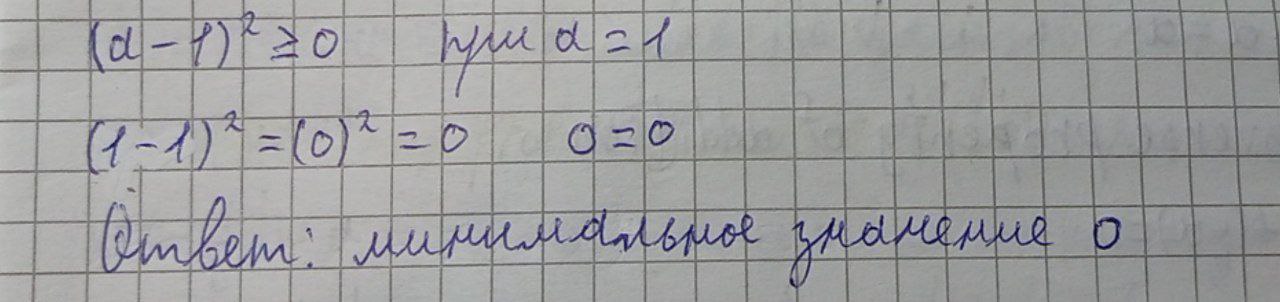 (a-1)² ≥ 0 при a = 1
(1-1)² = (0)² = 0 0 = 0
Ответ: минимальное значение 0